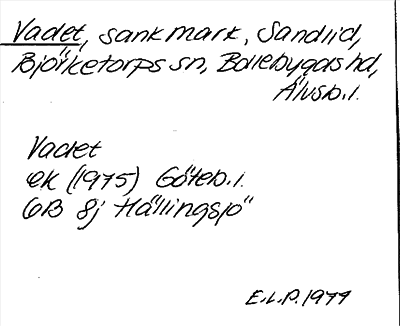 Vadet, sank mark, Sandlid,
Björketorps sn, Bollebygds hd,
Älvsb.l.
Vadet
EK (1975) Göteb.l.
6B 8j Hällingsjö
E.L.P. 1977